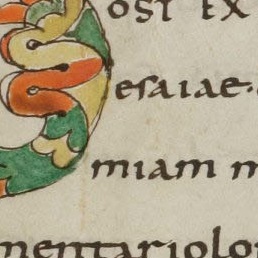 ost ex
esaiae·
miam m
mentariolo